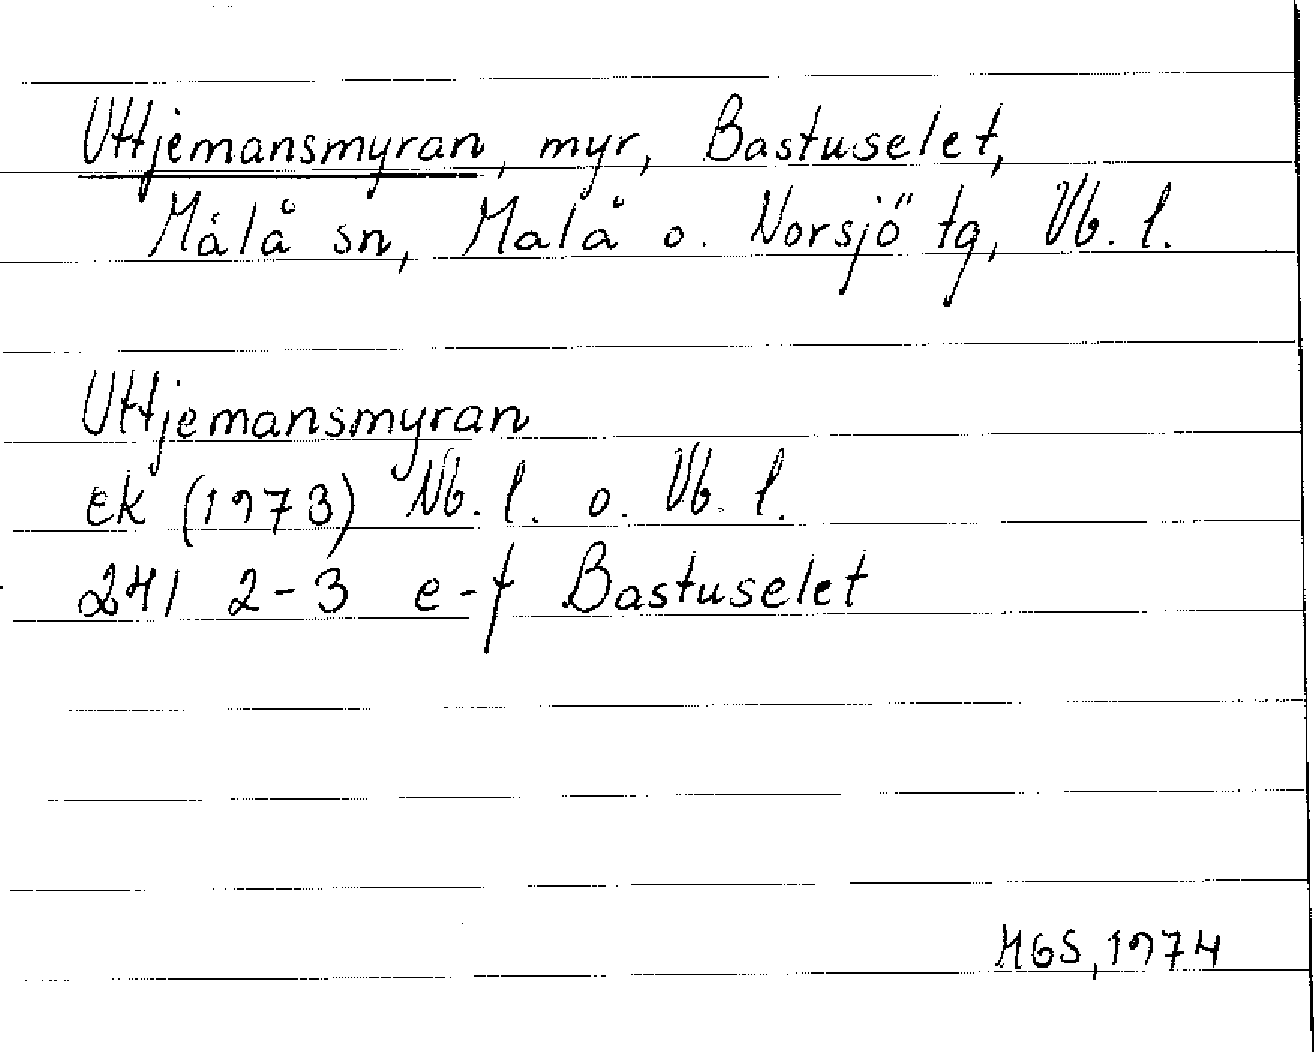 Uttjemansmyran, myr, Bastuselet,
Målå sn, Malå o. Norsjö tg, Vb. l.
Uttjemansmyran
ek (1973) Nb. l. o. Vb. l.
241 2-3 e-f Bastuselet
HGS, 1974